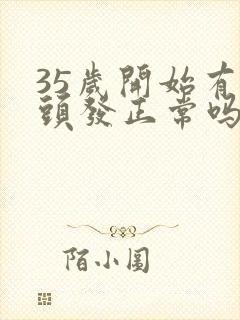 35歲開始有
頭發正常吗
陌小圓